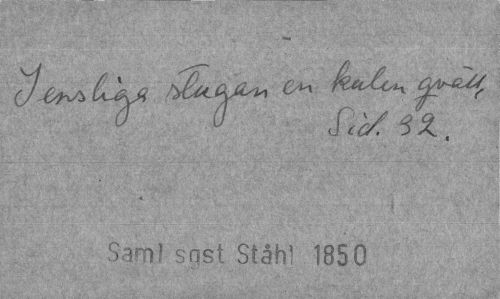 I ensliga stugan en kulen qväll,
Sid. 92.
Saml sgst Ståhl 1850